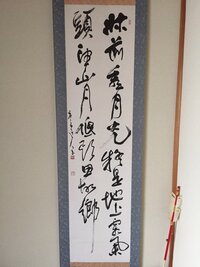 牀前看月光疑是地上霜擧
頭望山月低頭思故郷